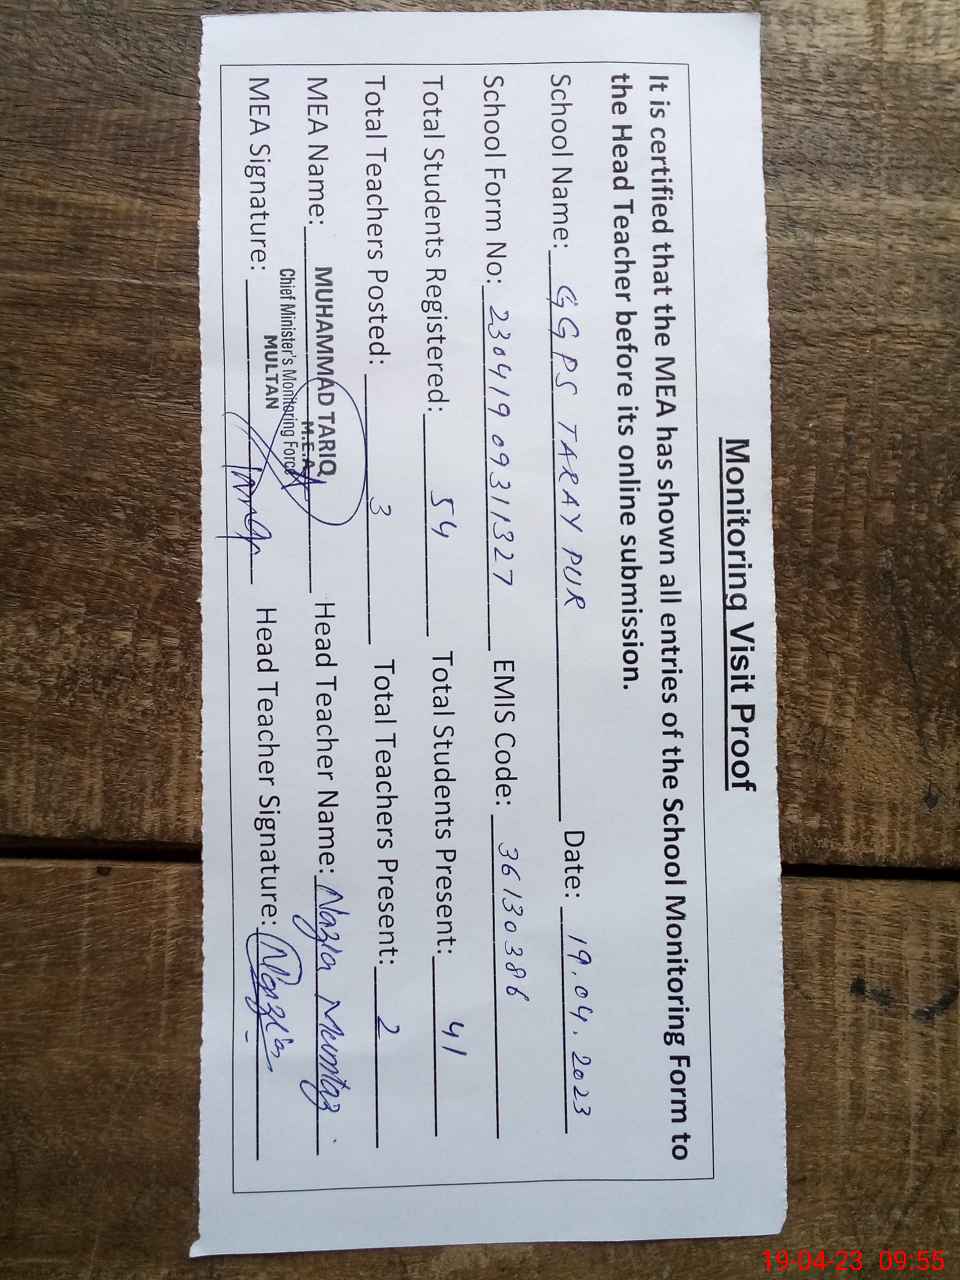 Monitoring Visit Proof
It is certified that the MEA has shown all entries of the School Monitoring Form to
the Head Teacher before its online submission.
School Name: GGPS TARAY PUR Date: 19.04.2023
School Form No: 230419 09311327 EMIS Code: 36130386
Total Students Registered: 54 Total Students Present: 41
Total Teachers Posted: 3 Total Teachers Present: 2
MEA Name: MUHAMMAD TARIQ Head Teacher Name: Nazia Mumtaz
M.E.A
Chief Minister's Monitoring Force
MULTAN
MEA Signature: Head Teacher Signature: Nazia
19-04-23 09:55